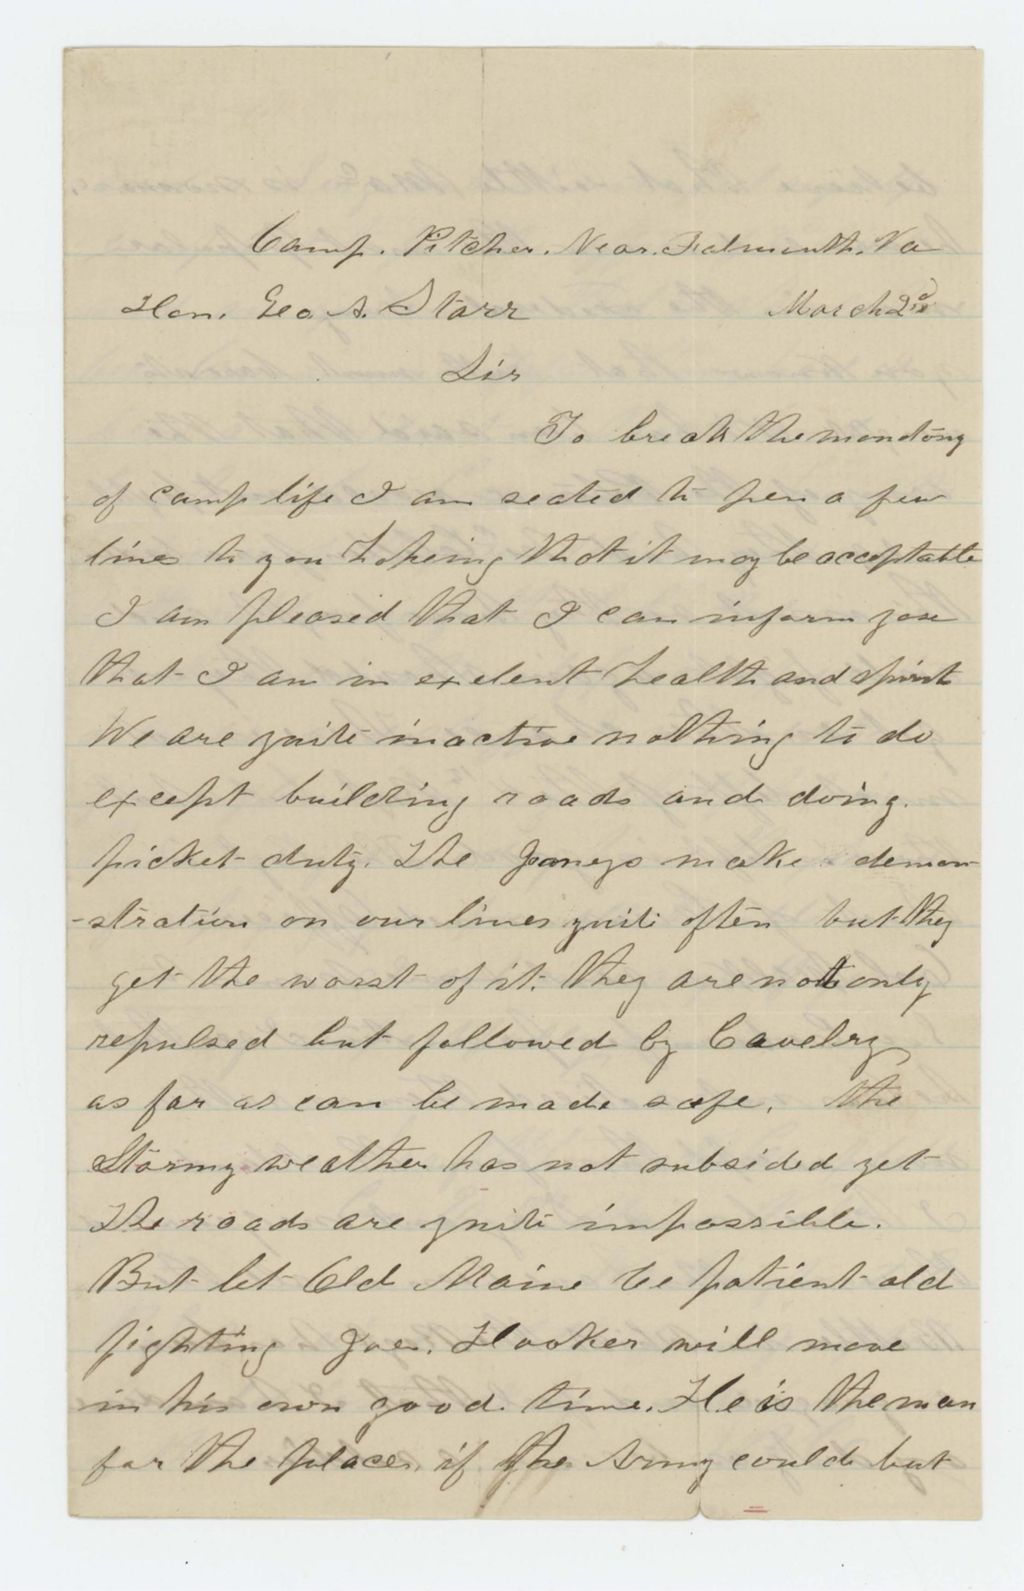 Camp. Pitcher. Near. Falmouth. Va
Hon. Geo A. Starr March 2nd
Sir
To break the monotony
of camp life I am seated to pen a few
lines to you hopeing that it may be acceptable
I am pleased that I can inform you
that I am in exelent health and spirit
We are quite inactive nothing to do
except building roads and doing.
picket duty. The Joneys make demon
-stration on our lines quite often but they
get the worst of it. they are not only
repulsed but followed by Cavelry
as far as can be made safe. the
Stormy weather has not subsided yet
The roads are quite impossible.
But let Old Maine be patient old
fighting Joe. Hooker will move
in his own good time. He is the man
for the place, if the Army could but